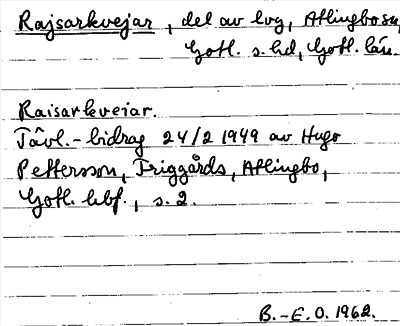 Rajsarkvejar, del av lvg, Atlingbo sn,
Gotl. s. hd, Gotl. län.
Raisarkveiar.
Tävl.-bidrag 24/2 1949 av Hugo
Pettersson, Triggårds, Atlingbo,
Gotl. hbf., s. 2.
B.-E.O. 1962.